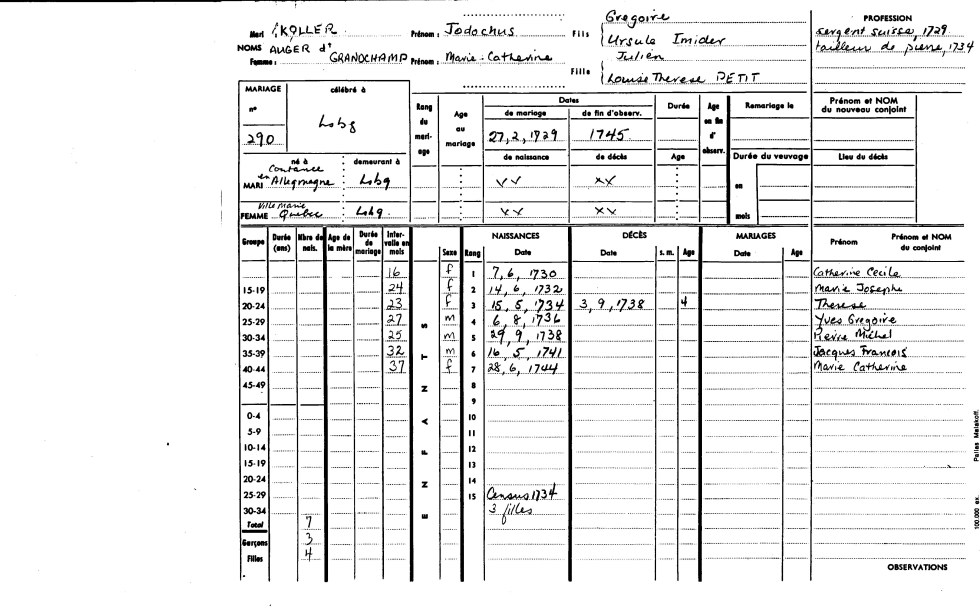 Mari : KOLLER Prénom : Jodochus Fils Gregoire PROFESSION
Ursule Imider sergent suisse, 1729
NOMS AUGER d' tailleur de pierre, 1734
Femme : GRANDCHAMP Prénom : Marie-Catherine Fille Julien
Louise Therese PETIT
MARIAGE célébré à Rang du mariage Age au mariage Dates Durée Age en fin d'observ. Remariage le Prénom et NOM du nouveau conjoint
n° 290 Lsbg de mariage de fin d'observ.
27, 2, 1729 1745
né à demeurant à de naissance de décès Age Durée du veuvage Lieu du décès
MARI Constance en Allegmagne Lsbg vv xx en
FEMME Ville Marie Quebec Lsbg. xx xx mois
Groupe Durée (ans) Nbre de nais. Age de la mère Durée de mariage Intervalle en mois ENFANTS Sexe Rang NAISSANCES Date DÉCÈS Date s. m. Age MARIAGES Date Age Prénom Prénom et NOM du conjoint
16 f 1 7, 6, 1730 Catherine Cecile
15-19 24 f 2 14, 6, 1732 Marie Josephe
20-24 23 f 3 15, 5, 1734 3, 9, 1738 4 Therese
25-29 27 m 4 6, 8, 1736 Yves Gregoire
30-34 25 m 5 29, 9, 1738 Pierre Michel
35-39 32 m 6 16, 5, 1741 Jacques Francois
40-44 37 f 7 28, 6, 1744 Marie Catherine
45-49 8
9
0-4 10
5-9 11
10-14 12
15-19 13
20-24 14
25-29 15 Census 1734
30-34 3 filles
Total 7
Garçons 3
Filles 4
OBSERVATIONS
100.000 ex. Pallas Malakoff.